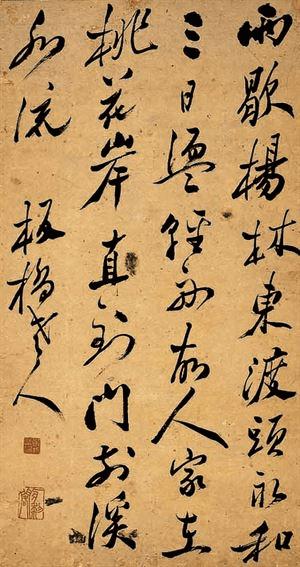 雨歇楊林東渡頭永和
三日盪輕舟故人家在
桃花岸直到門前溪
水流
板橋老人